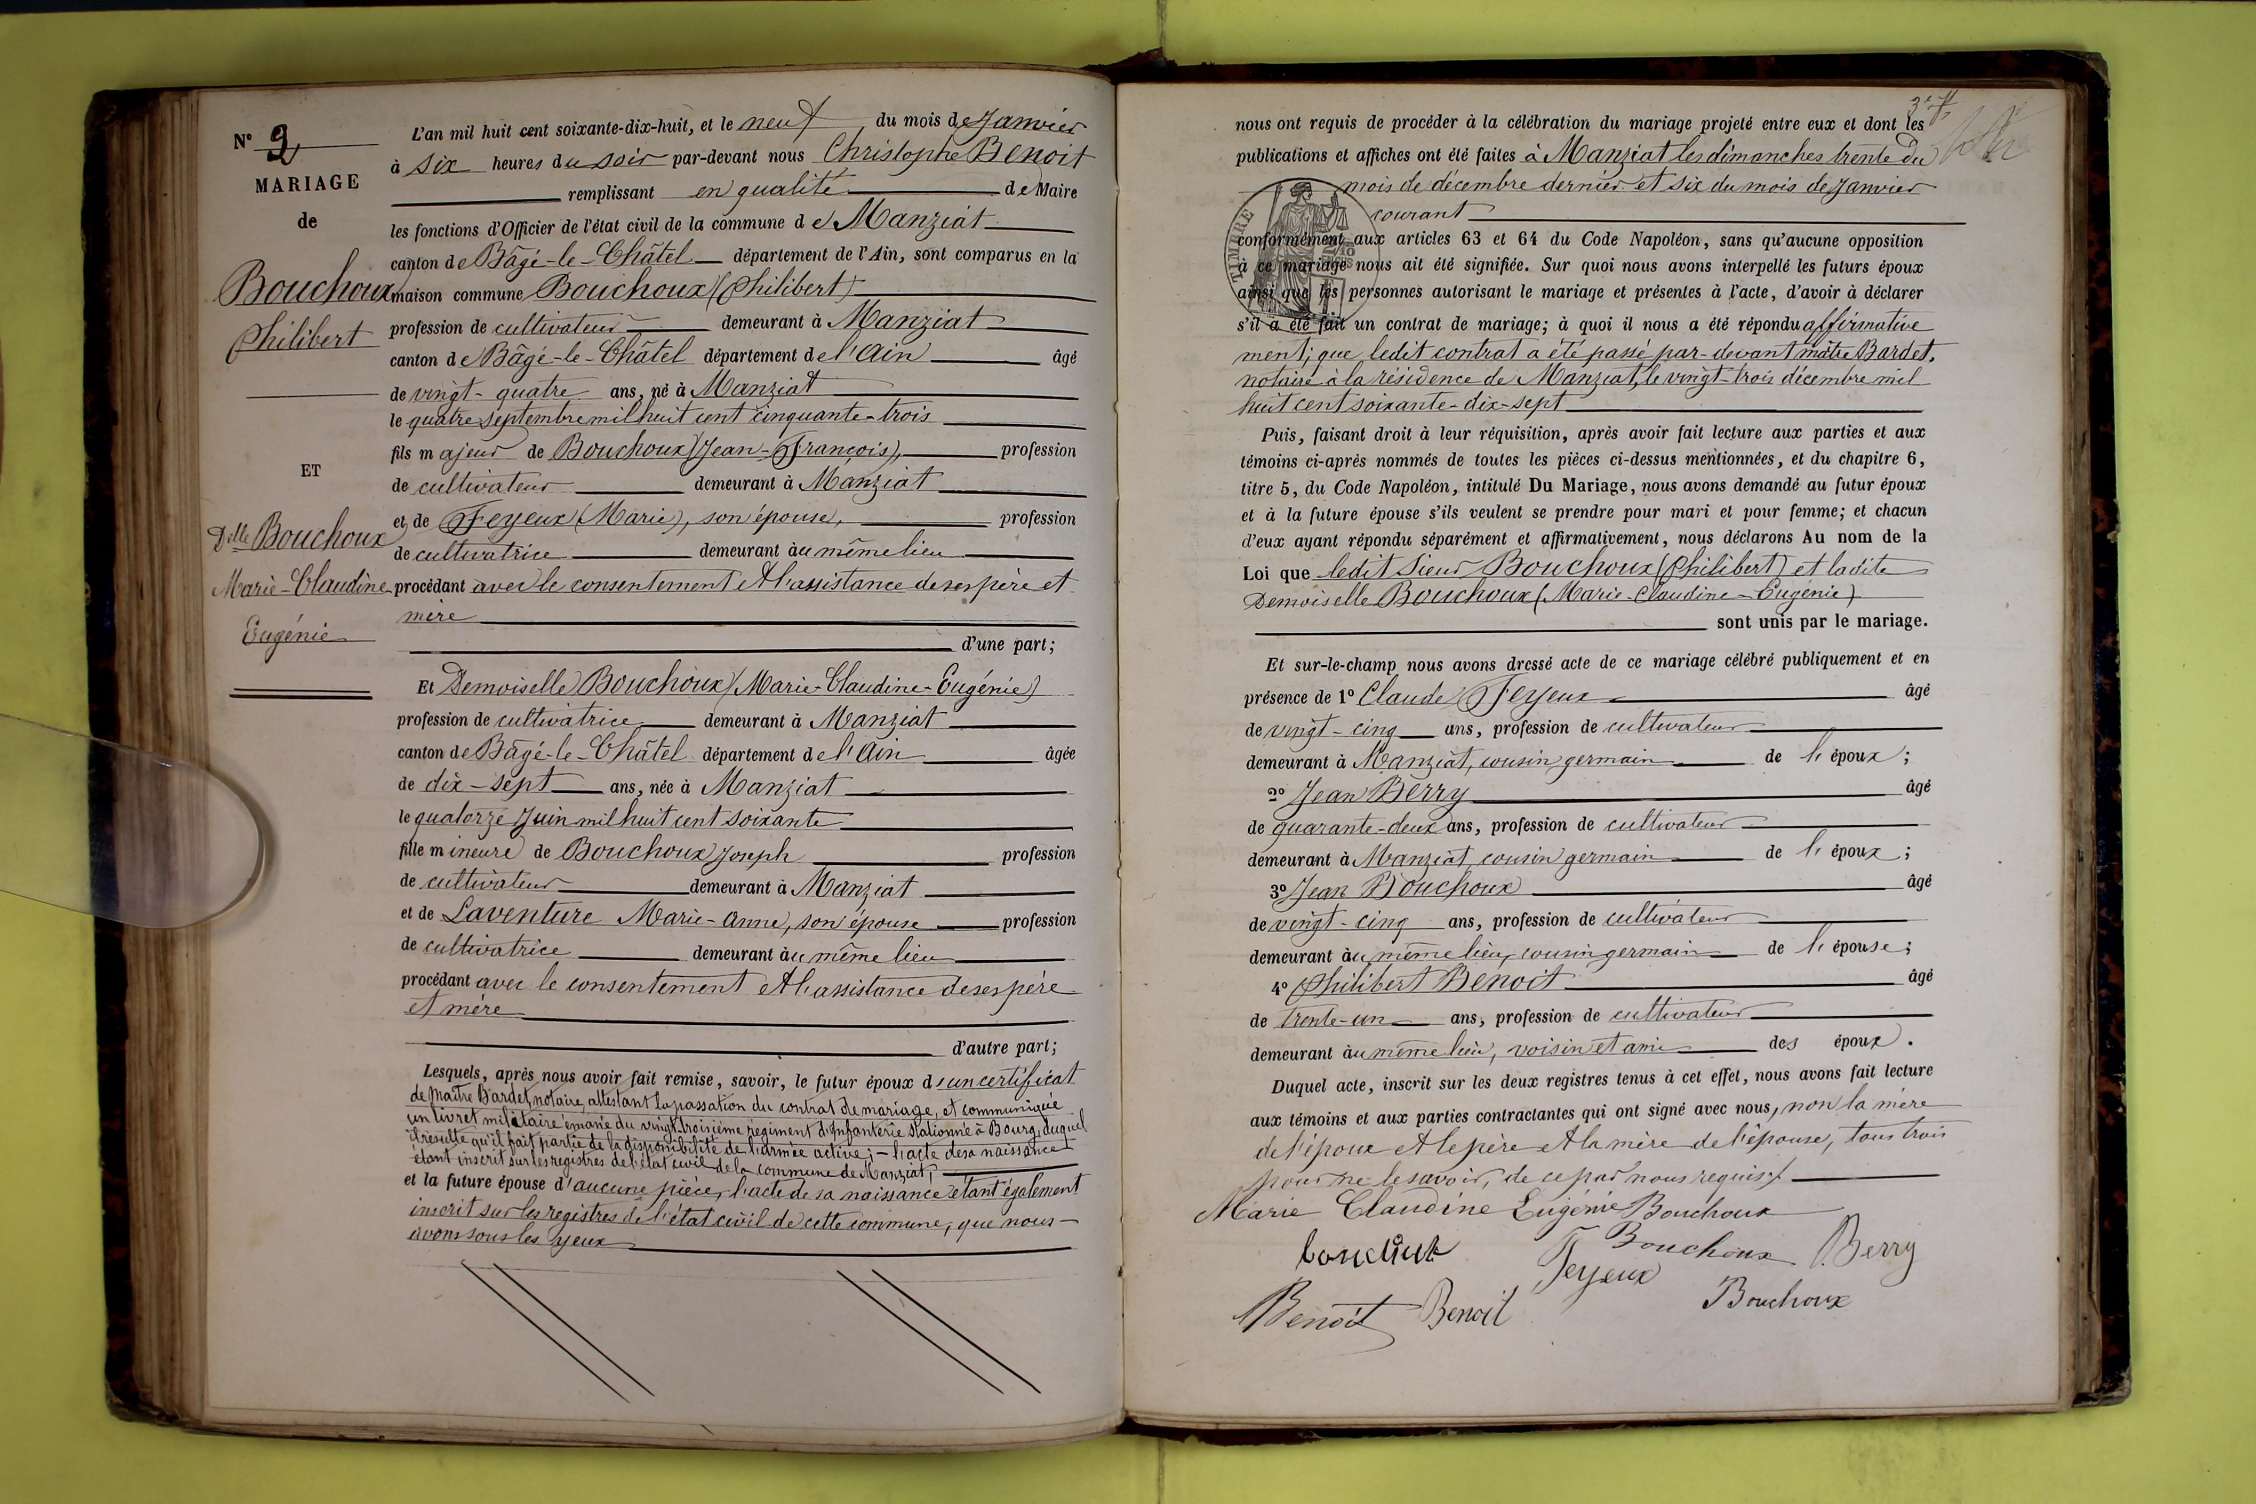 N° 2
MARIAGE
de
Bouchoux
Philibert
ET
Delle Bouchoux
Marie-Claudine
Eugénie
L'an mil huit cent soixante-dix-huit, et le neuf du mois de Janvier
à six heures du soir par-devant nous Christophe Benoit
remplissant en qualité de Maire
les fonctions d'Officier de l'état civil de la commune de Manziat
canton de Bâgé-le-Châtel département de l'Ain, sont comparus en la
maison commune Bouchoux (Philibert)
profession de cultivateur demeurant à Manziat
canton de Bâgé-le-Châtel département de l'Ain âgé
de vingt-quatre ans, né à Manziat
le quatre septembre mil huit cent cinquante-trois
fils majeur de Bouchoux (Jean-François), profession
de cultivateur demeurant à Manziat
et de Feyeux (Marie), son épouse, profession
de cultivatrice demeurant au même lieu
procédant avec le consentement et l'assistance de ses père et
mère
d'une part;
Et Demoiselle Bouchoux (Marie-Claudine-Eugénie)
profession de cultivatrice demeurant à Manziat
canton de Bâgé-le-Châtel département de l'Ain âgée
de dix-sept ans, née à Manziat
le quatorze Juin mil huit cent soixante
fille mineure de Bouchoux Joseph profession
de cultivateur demeurant à Manziat
et de Laventure Marie-Anne, son épouse profession
de cultivatrice demeurant au même lieu
procédant avec le consentement et l'assistance de ses père
et mère
d'autre part;
Lesquels, après nous avoir fait remise, savoir, le futur époux d'un certificat
de Maître Bardet, notaire, attestant la passation du contrat de mariage, et communiqué
un livret militaire émané du vingt-troisième régiment d'Infanterie stationné à Bourg, duquel
il résulte qu'il fait partie de la disponibilité de l'armée active; - l'acte de sa naissance
étant inscrit sur les registres de l'état civil de la commune de Manziat;
et la future épouse d'aucune pièce, l'acte de sa naissance étant également
inscrit sur les registres de l'état civil de cette commune, que nous
avons sous les yeux
nous ont requis de procéder à la célébration du mariage projeté entre eux et dont les
publications et affiches ont été faites à Manziat les dimanches trente du
mois de décembre dernier et six du mois de Janvier
courant
TIMBRE
conformément aux articles 63 et 64 du Code Napoléon, sans qu'aucune opposition
à ce mariage nous ait été signifiée. Sur quoi nous avons interpellé les futurs époux
ainsi que les personnes autorisant le mariage et présentes à l'acte, d'avoir à déclarer
s'il a été fait un contrat de mariage; à quoi il nous a été répondu affirmative
ment; que ledit contrat a été passé par-devant maître Bardet,
notaire à la résidence de Manziat, le vingt-trois décembre mil
huit cent soixante-dix-sept
Puis, faisant droit à leur réquisition, après avoir fait lecture aux parties et aux
témoins ci-après nommés de toutes les pièces ci-dessus mentionnées, et du chapitre 6,
titre 5, du Code Napoléon, intitulé Du Mariage, nous avons demandé au futur époux
et à la future épouse s'ils veulent se prendre pour mari et pour femme; et chacun
d'eux ayant répondu séparément et affirmativement, nous déclarons Au nom de la
Loi que ledit Sieur Bouchoux (Philibert) et ladite
Demoiselle Bouchoux (Marie-Claudine-Eugénie)
sont unis par le mariage.
Et sur-le-champ nous avons dressé acte de ce mariage célébré publiquement et en
présence de 1° Claude Feyeux âgé
de vingt-cinq ans, profession de cultivateur
demeurant à Manziat, cousin germain de l'époux;
2° Jean Berry âgé
de quarante-deux ans, profession de cultivateur
demeurant à Manziat, cousin germain de l'époux;
3° Jean Bouchoux âgé
de vingt-cinq ans, profession de cultivateur
demeurant au même lieu, cousin germain de l'épouse;
4° Philibert Benoit âgé
de trente-un ans, profession de cultivateur
demeurant au même lieu, voisin et ami des époux.
Duquel acte, inscrit sur les deux registres tenus à cet effet, nous avons fait lecture
aux témoins et aux parties contractantes qui ont signé avec nous, non la mère
de l'époux et le père et la mère de l'épouse, tous trois
pour ne le savoir, de ce par nous requis
Marie Claudine Eugénie Bouchoux
Bouchoux Berry
Feyeux
Benoit Benoit Bouchoux